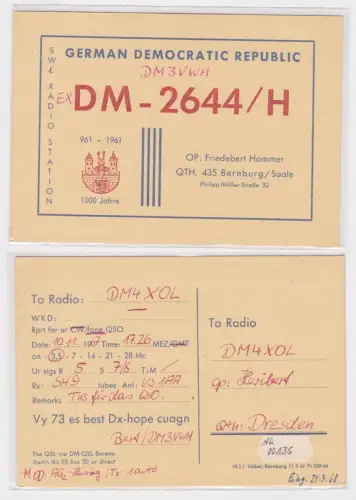 GERMAN DEMOCRATIC REPUBLIC
DM3VWH
EX DM-2644/H
SWL RADIO STATION
961 - 1961
1000 Jahre
OP. Friedebert Hammer
QTH. 435 Bernburg/Saale
Philipp-Müller-Straße 32
To Radio: DM4XOL
WKD:
Rprt fer ur CW/fone QSO
Date: 10.11. 19 Time: 17.26 MEZ/GMT
on 3,5 - 7 - 14 - 21 - 28 Mc
Ur sigs R 5 S 7/8 T:M /
Rx: 5H9 tubes Ant: VS1AA
Remarks Tks für das QSO.
Vy 73 es best Dx-hope cuagn
Bert/DM3VWH
Pse QSL via DM-QSL Bureau
Berlin No 55 Box 30 or direct
Tx: 10wtts
To Radio
DM4XOL
op: Heribert
Qth: Dresden
00135
Eing. 21.3.68